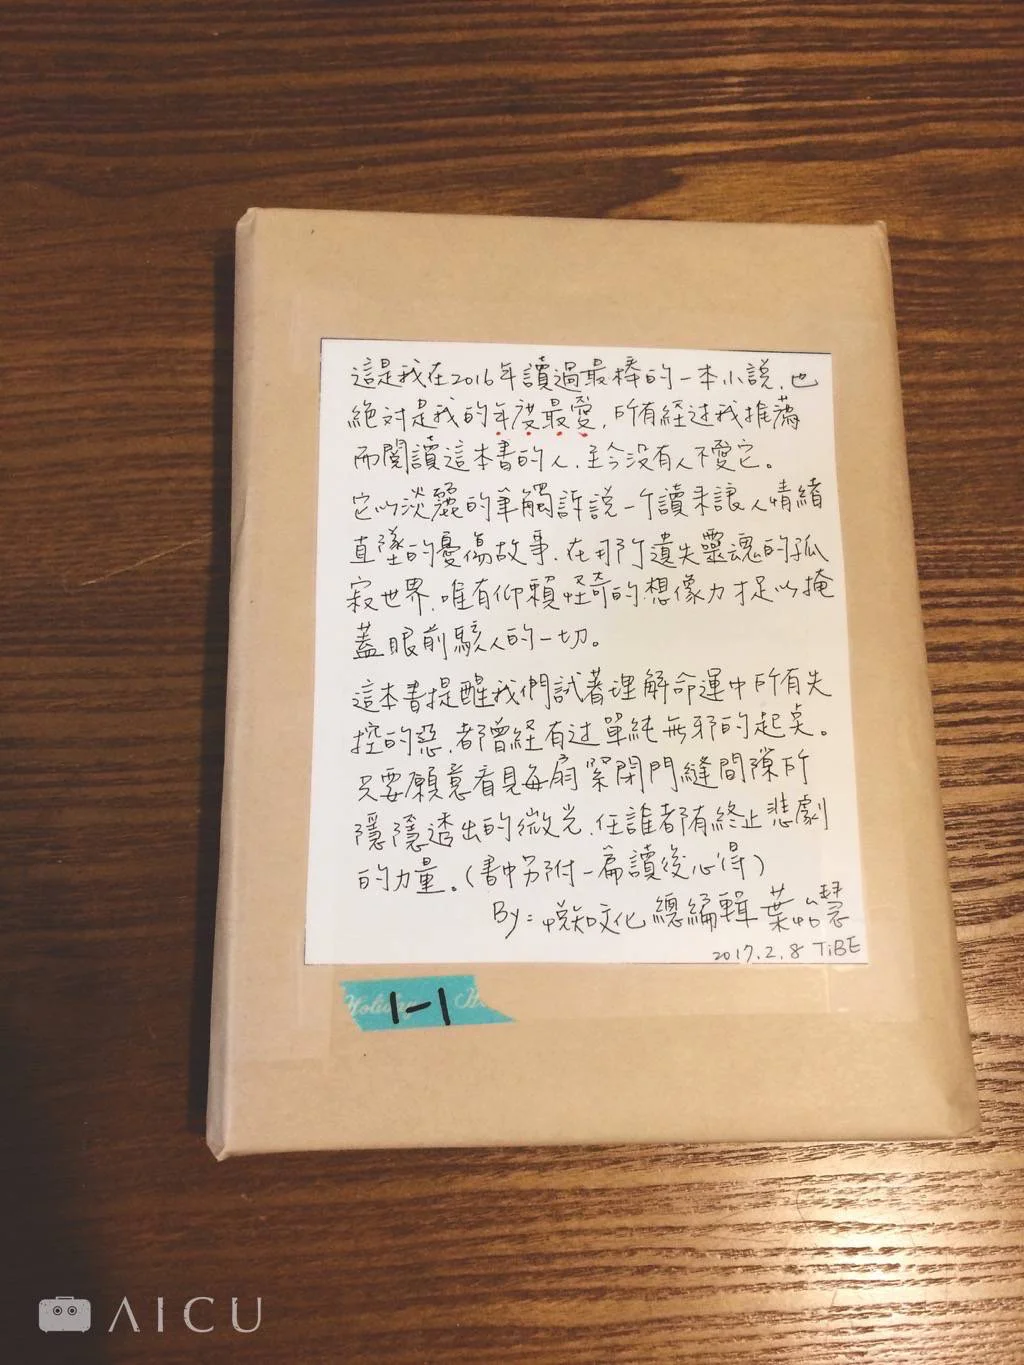 這是我在2016年讀過最棒的一本小說，也
絕對是我的年度最愛，所有經过我推薦
而閱讀這本書的人，至今沒有人不愛它。
它以淡麗的筆觸訴說一個讀來讓人情緒
直墜的憂傷故事，在那遺失靈魂的孤
寂世界，唯有仰賴怪奇的想像力才足以掩
蓋眼前駭人的一切。
這本書提醒我們試著理解命運中所有失
控的惡，都曾経有过單純無邪的起点。
只要願意看見每扇緊閉門縫間隙所
隱隱透出的微光，任誰都有終止悲劇
的力量。（書中另附一篇讀後心得）
By：悅知文化 總編輯 葉怡慧
2017.2.8 TiBE
Holiday
1-1
AICU